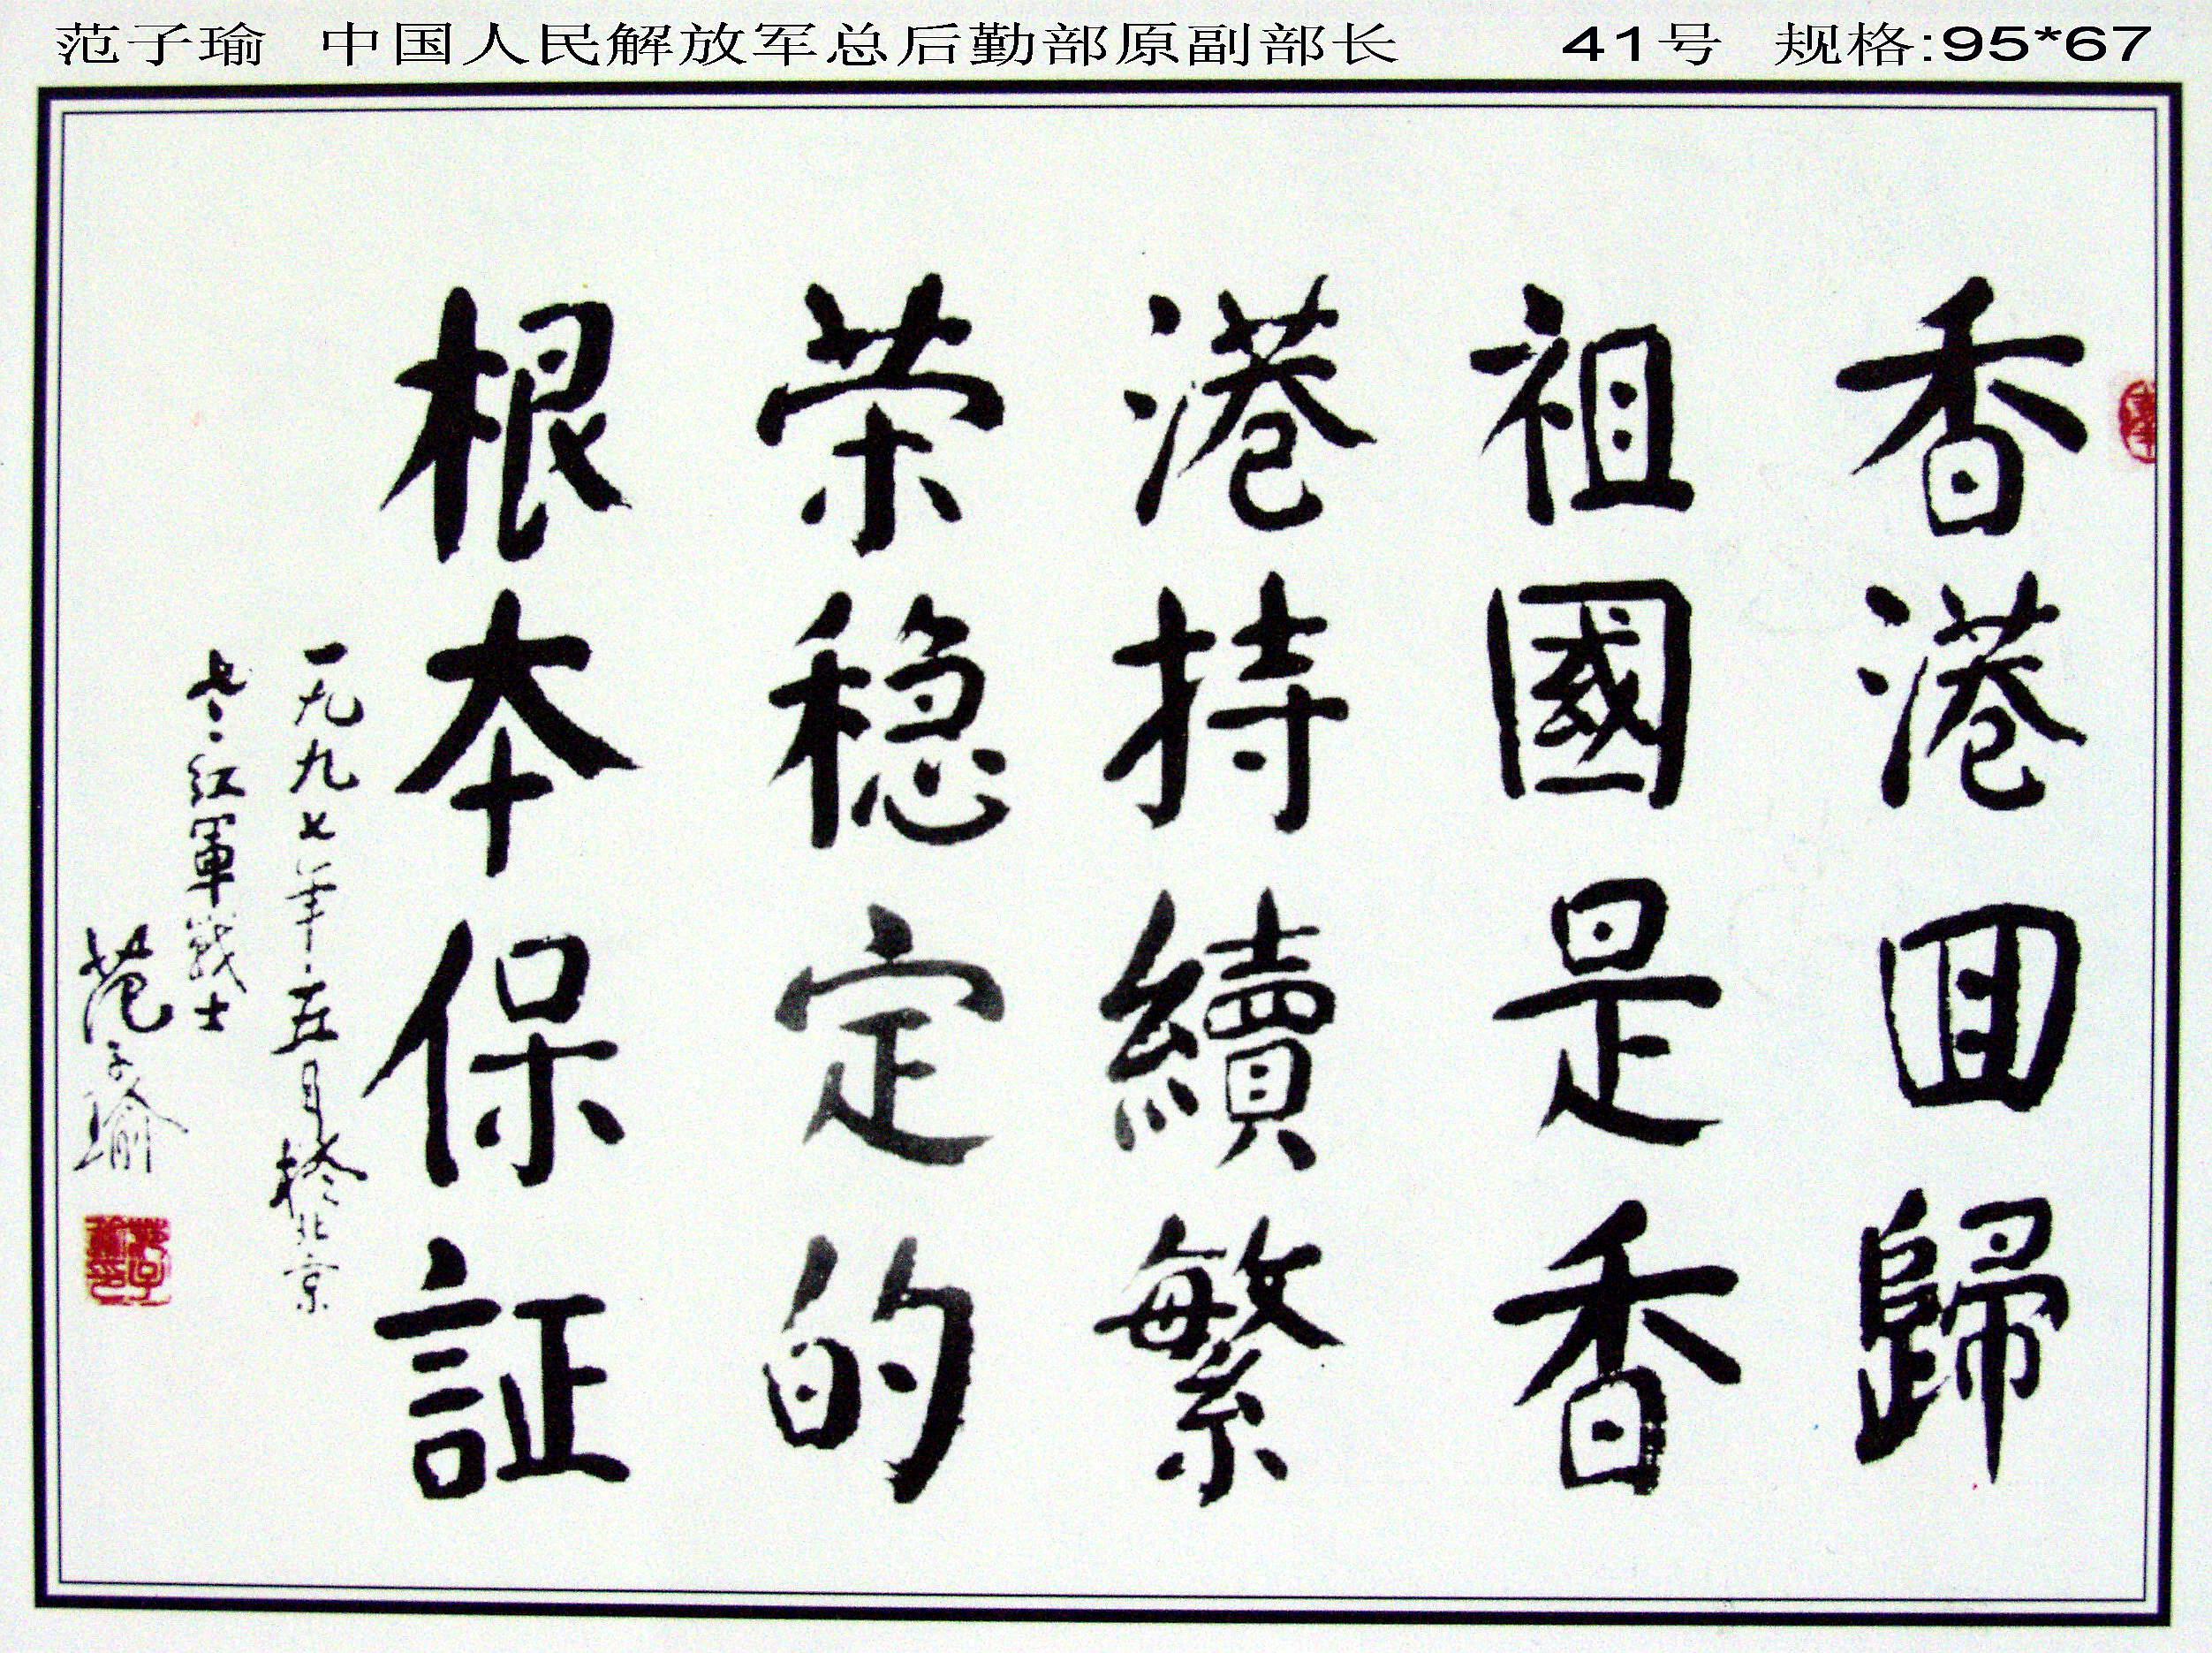 范子瑜 中国人民解放军总后勤部原副部长 41号 规格:95*67
香港回歸
祖國是香
港持續繁
荣稳定的
根本保証
一九九七年五月於北京
老红軍战士
范子瑜
范子瑜印